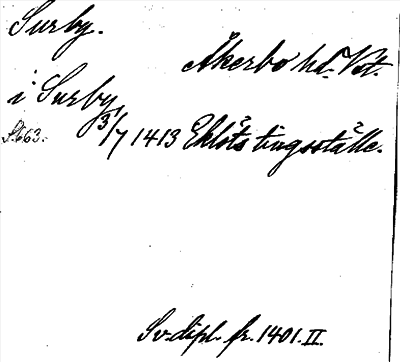 Surby.
Åkerbo hd. Vst.
i Surby,
S. 663. 3/7 1413 Eklöts tingsställe.
Sv. dipl. fr. 1401. II.